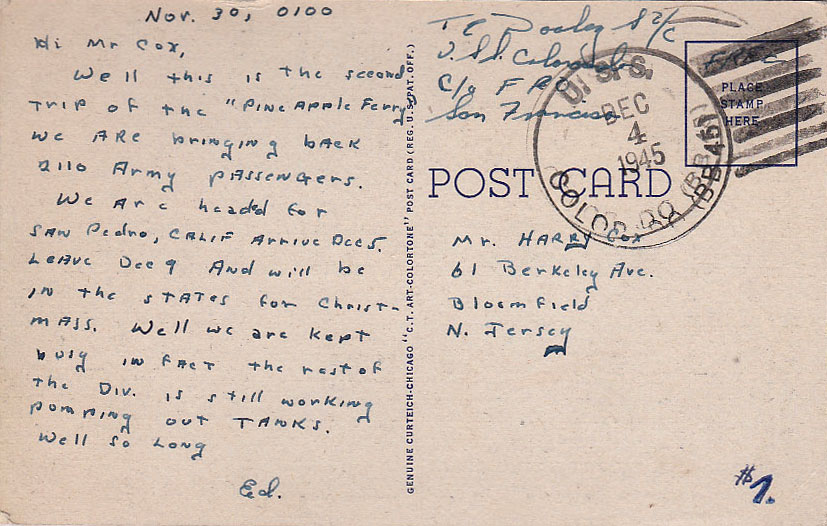 Nov. 30, 0100
Hi Mr Cox,
Well this is the second
trip of the "PineApple Ferry"
we are bringing back
2110 Army passengers.
We are headed for
San Pedro, Calif Arrive Dec 5.
Leave Dec 9 And will be
in the states for Christ-
mass. Well we are kept
busy in fact the rest of
the Div. is still working
pomping out TANKS.
Well so Long
Ed.
GENUINE CURTEICH-CHICAGO "C.T. ART-COLORTONE" POST CARD (REG. U.S. PAT. OFF.)
S 2/C
U.S.S. Colorado
C/o F P O
San Francisco
Free
PLACE
STAMP
HERE
U.S.S.
DEC
4
1945
COLORADO (BB45)
POST CARD
Mr. HARRY Cox
61 Berkeley Ave.
Bloomfield
N. Jersey
#1.